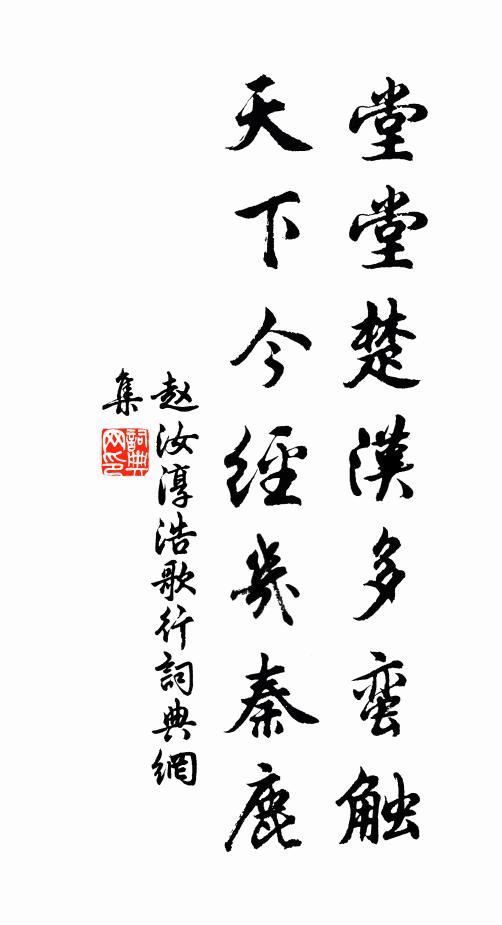 堂堂楚漢多蛮触
天下今經幾秦鹿
赵汝淳浩歌行詞典網
集
詞典网印